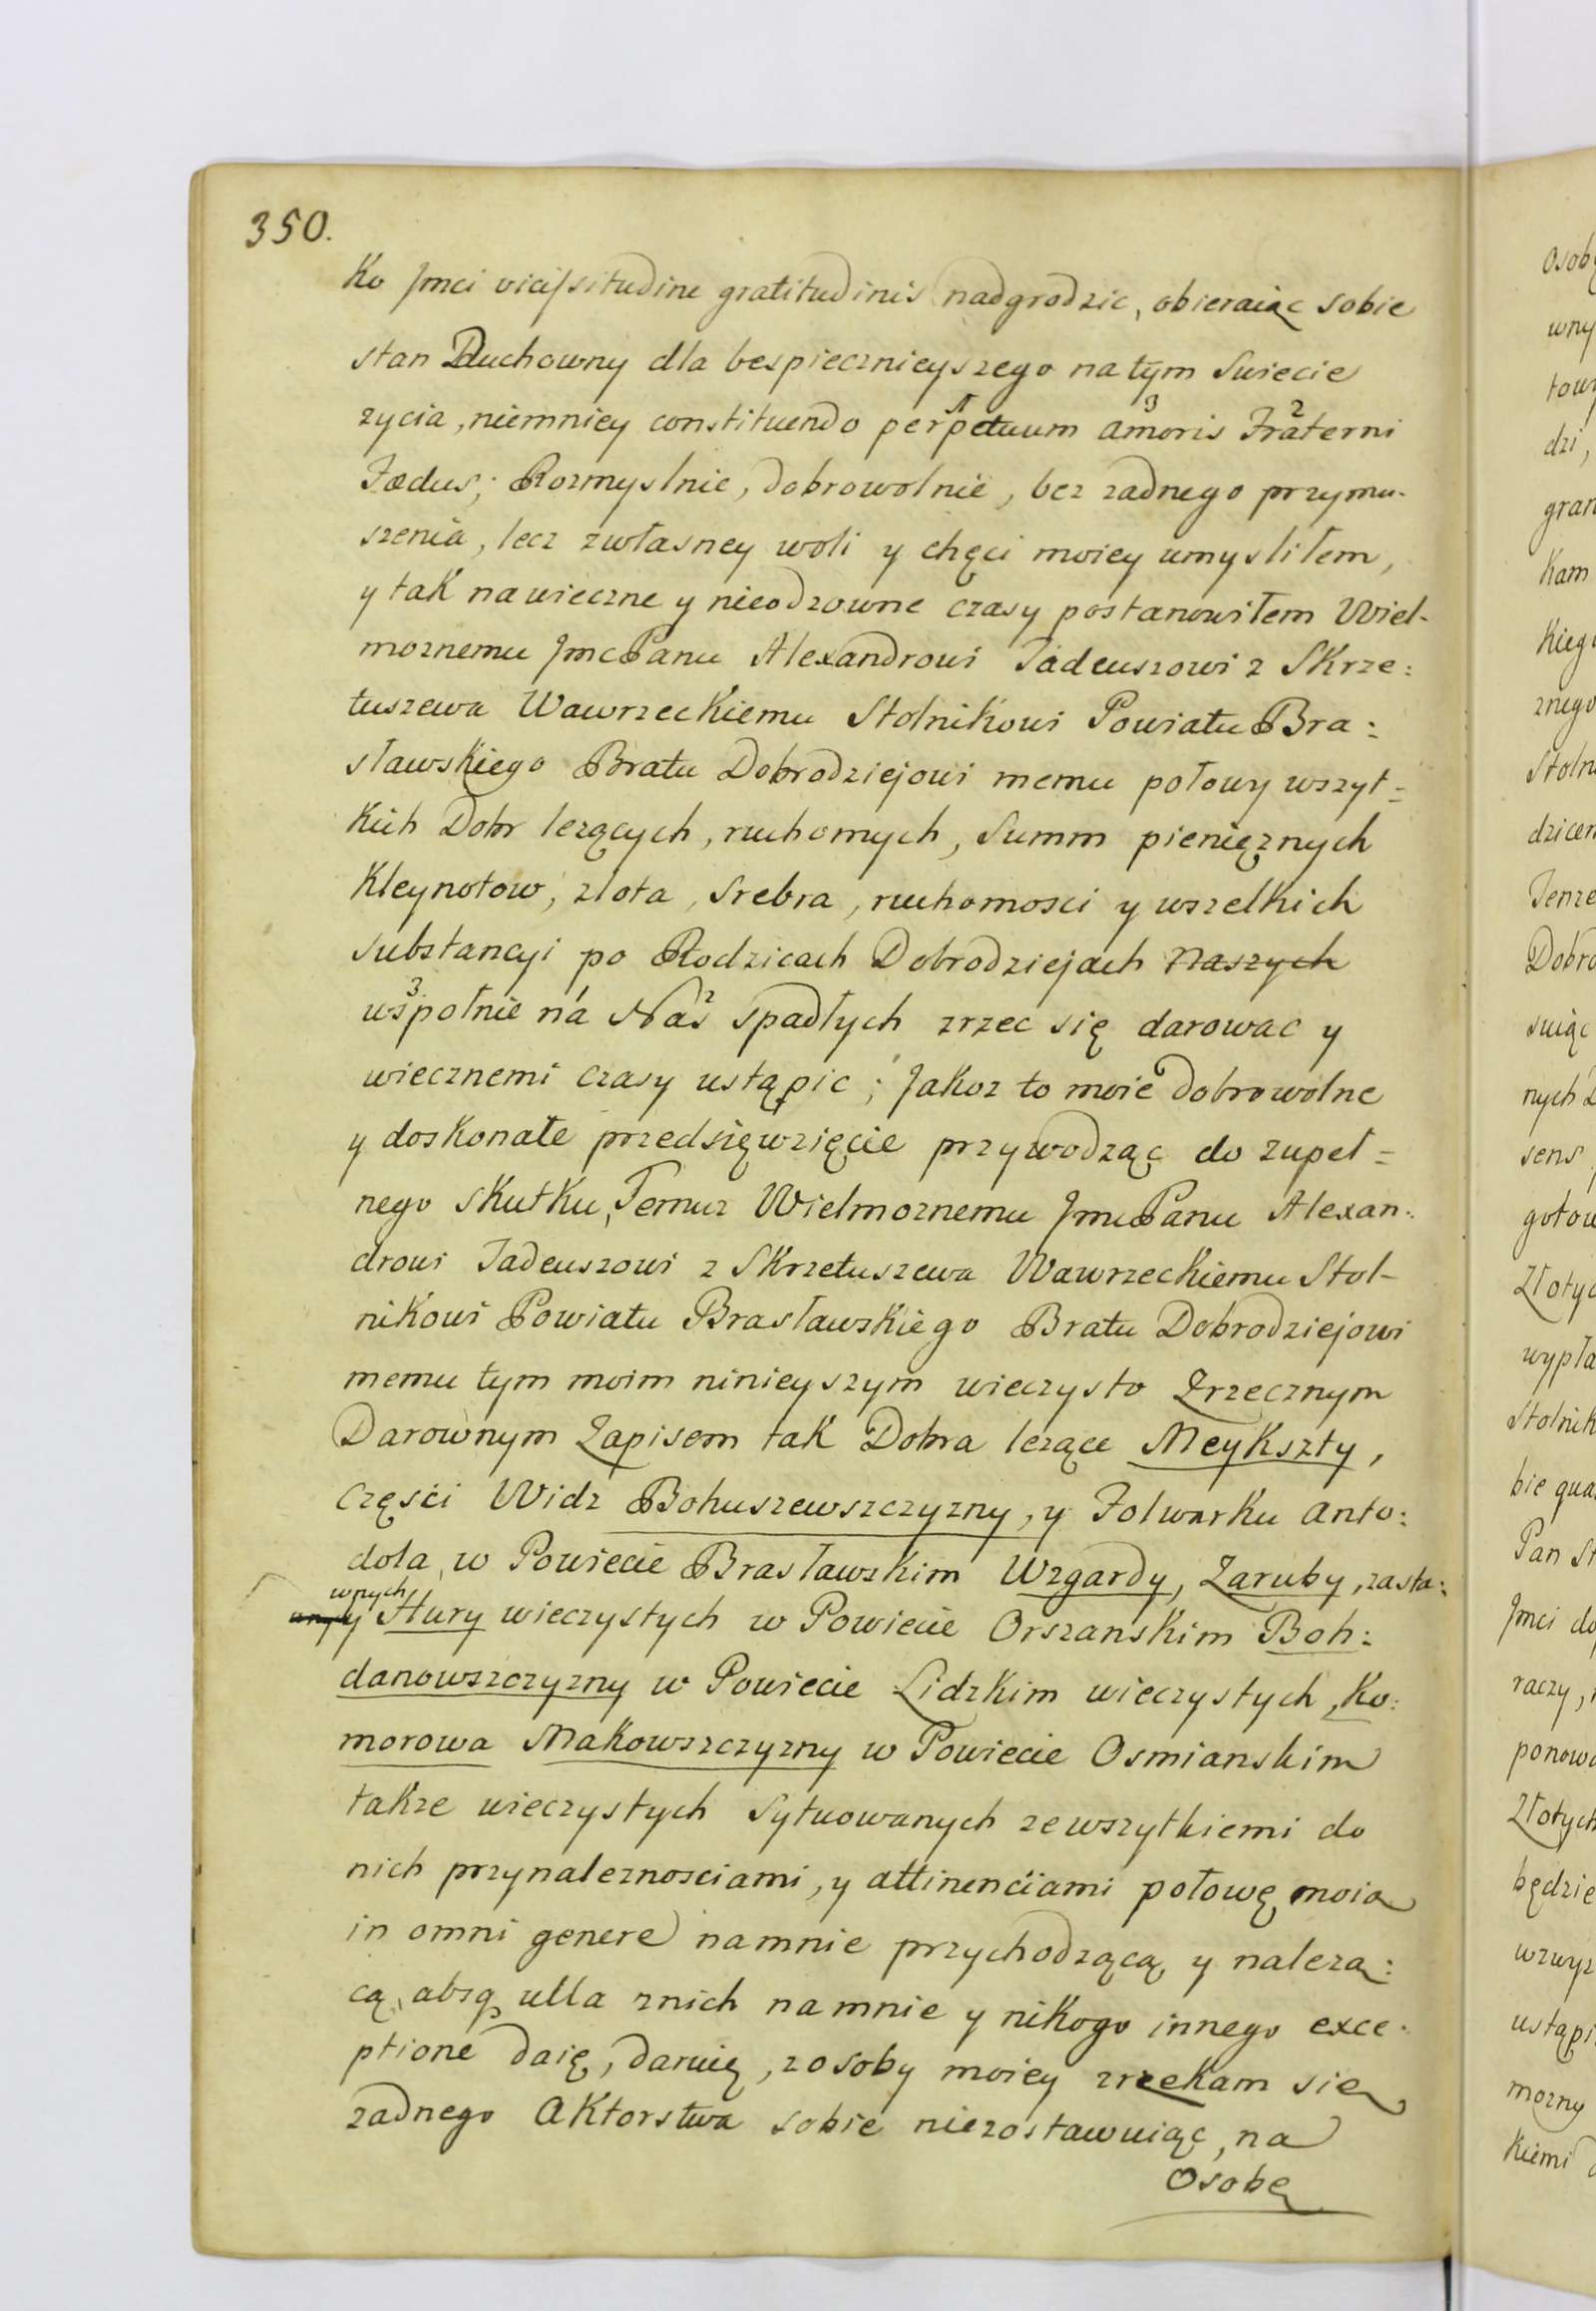 350.
Ko Jmci vicissitudine gratitudinis nadgrodzic, obieraiąc sobie
stan Duchowny dla bespiecznieyszego na tym Swiecie
zycia, niemniey constituendo perpetuum amoris Fraterni
1 3 2
Fædus; Rozmyslnie, dobrowolnie, bez zadnego przymu-
szenia, lecz zwłasney woli y chęci moiey umysliłem,
y tak nawieczne y nieodzowne czasy postanowiłem Wiel-
moznemu JmcPanu Alexandrowi Tadeuszowi z Skrze:
tuszewa Wawrzeckiemu Stolnikowi Powiatu Bra:
sławskiego Bratu Dobrodziejowi memu połowy wszyt=
kich Dobr lezących, ruchomych, Summ pienięznych
Kleynotow, zlota, srebra, ruchomosci y wszelkich
substancyi po Rodzicach Dobrodziejach Naszych
wspolnie na Nas spadłych zrzec się darowac y
3 1 2
wiecznemi czasy ustąpic; Jakoz to moie dobrowolne
y doskonałe przedsięwzięcie przywodząc do zupeł=
nego skutku, Temuz Wielmoznemu JmcPanu Alexan:
drowi Tadeuszowi z Skrzetuszewa Wawrzeckiemu Stol-
nikowi Powiatu Brasławskiego Bratu Dobrodziejowi
memu tym moim ninieyszym wieczysto Zrzecznym
Darownym Zapisem tak Dobra lezące Meykszty,
części Widz Bohuszewszczyzny, y Folwarku Anto:
dola, w Powiecie Brasławskim Wzgardy, Zaruby, zasta:
wnych
y Hury wieczystych w Powiecie Orszanskim Boh:
danowszczyzny w Powiecie Lidzkim wieczystych, Ko:
morowa Makowszczyzny w Powiecie Osmianskim
takze wieczystych sytuowanych ze wszytkiemi do
nich przynaleznosciami, y attinenciami połowę moia
in omni genere namnie przychodzącą y naleza:
cą, absq ulla znich na mnie y nikogo innego exce:
ptione daię, daruię, z osoby moiey zrzekam się
zadnego Aktorstwa sobie niezostawuiąc, na
Osobę